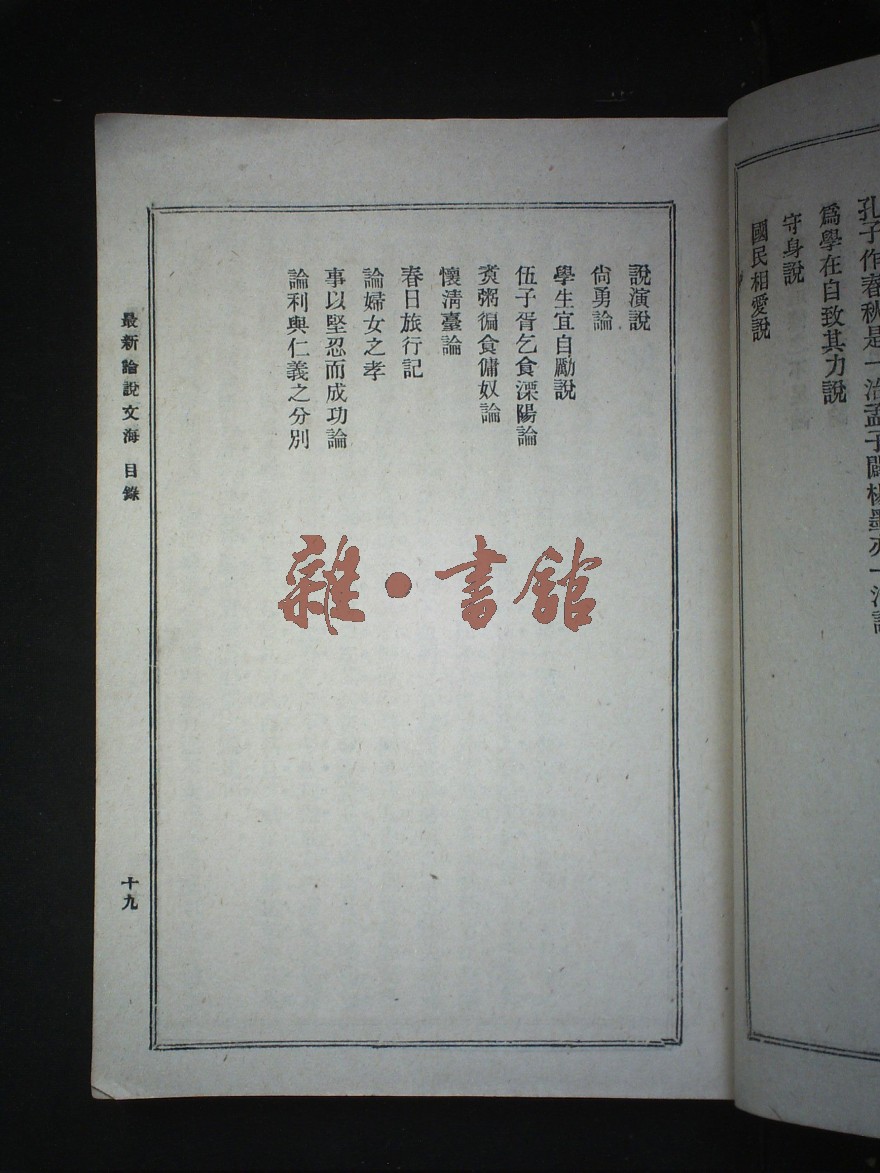 孔子作春秋是一治孟子闢楊墨亦一治說
爲學在自致其力說
守身說
國民相愛說
說演說
尙勇論
學生宜自勵說
伍子胥乞食溧陽論
賚粥徧食傭奴論
懷淸臺論
春日旅行記
論婦女之孝
事以堅忍而成功論
論利與仁義之分別
最新論說文海 目錄
十九
雜·書館